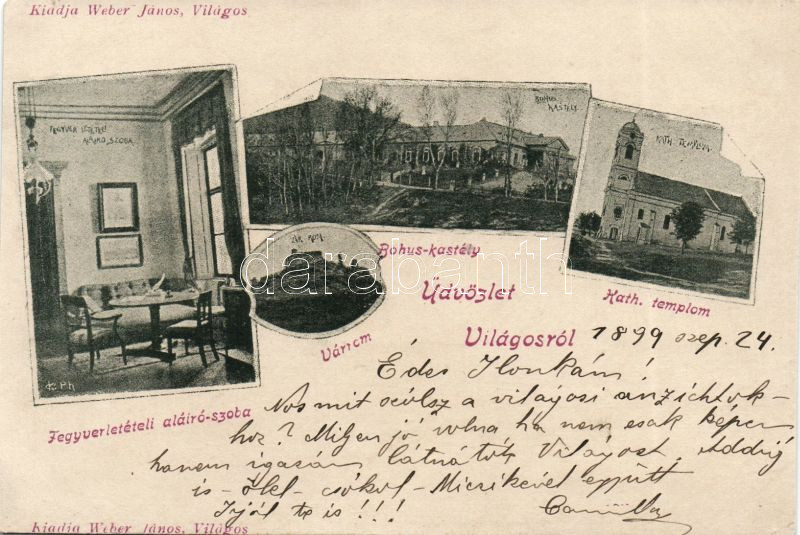 Kiadja Weber János, Világos
FEGYVER LETÉTELI
ALÁIRÓ SZOBA
BOHUS
KASTÉLY
KATH. TEMPLOM
VÁR ROM
Bohus-kastély
darabanth
Üdvözlet
Kath. templom
Várrom
Világosról 1899 szep. 24.
Édes Ilonkám!
Fegyverletételi aláiró-szoba
Nos mit szólsz a világosi anzichtok-
hoz? Milyen jó volna ha nem csak képen
hanem igazán látnátok Világost. Addig
is - ölel - csókol - Miczikével együtt
Írjál te is!!! Camilla
K. Ph
Kiadja Weber János, Világos